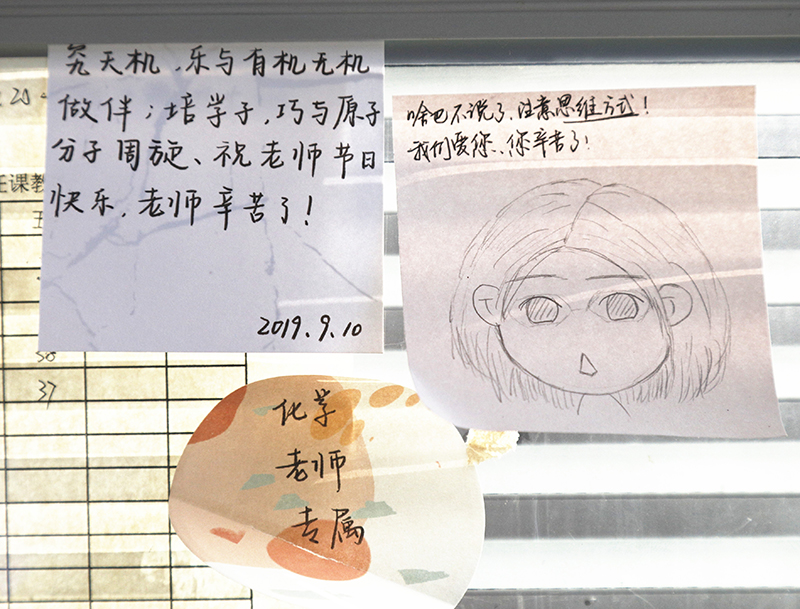 究天机，乐与有机无机
做伴；培学子，巧与原子
分子周旋、祝老师节日
快乐，老师辛苦了！
2019.9.10
啥也不说了，注意思维方式！
我们爱你，你辛苦了！
化学
老师
专属
20
任课教
五
38
37